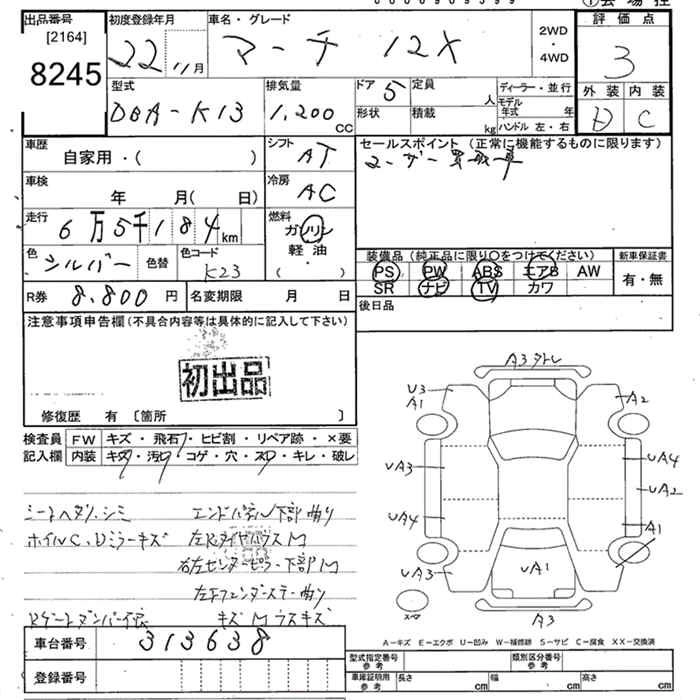 出品番号
[2164]
8245
初度登録年月
22 11月
車名・グレード
マーチ 12X
2WD
・
4WD
評価点
3
型式
DBA-K13
排気量
1,200 CC
ドア 5
定員 人
形状
積載 kg
ディーラー・並行
モデル年式 年
ハンドル 左・右
外装 内装
D C
車歴
自家用・( )
シフト
AT
セールスポイント (正常に機能するものに限ります)
ユーザー買取車
車検
年 月( 日)
冷房
AC
走行
6万5千184km
燃料
ガソリン
軽油
( ・ )
色
シルバー 色替
色コード
K23
装備品 (純正品に限り○をつけてください)
新車保証書
PS PW ABS エアB AW
SR ナビ TV カワ
有・無
R券 8,800 円
名変期限 月 日
後日品
注意事項申告欄 (不具合内容等は具体的に記入して下さい)
初出品
修復歴 有 〔箇所 〕
検査員
記入欄
FW キズ・飛石・ヒビ割・リペア跡・×要
内装 キズ・汚レ・コゲ・穴・スレ・キレ・破レ
シートヘタリ、シミ
ホイルC、Dミラーキズ
エンドパネル下部曲り
左Rタイヤハウス M
右左センターピラー下部M
左Fフェンダーステー曲り
キズ M ラスキズ
A3タトレ
U3
A1
A2
UA3
UA4
UA2
UA4
A1
UA3
UA1
A3
スペア
A-キズ E-エクボ U-凹み W-補修跡 S-サビ C-腐食 XX-交換済
車台番号
313638
登録番号
型式指定番号
参考
類別区分番号
参考
車庫証明用
参考
長さ cm
幅 cm
高さ cm